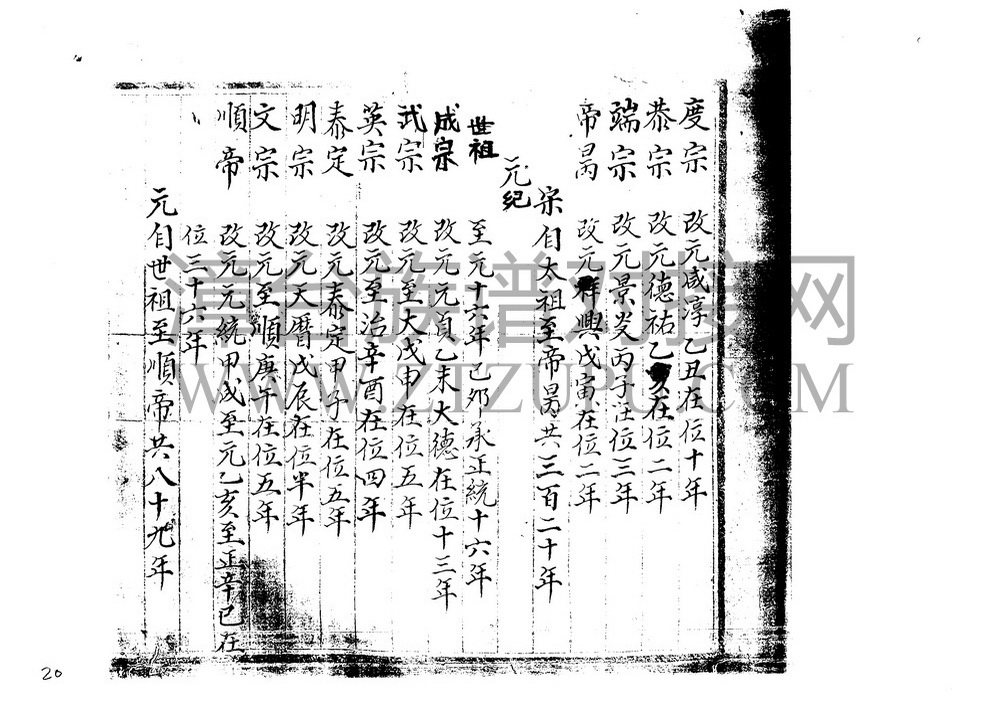 度宗 改元咸淳乙丑在位十年
恭宗 改元德祐乙亥在位二年
端宗 改元景炎丙子在位三年
帝昺 改元祥興戊寅在位二年
宋自太祖至帝昺共三百二十年
元紀
世祖 至元十六年己卯承正統十六年
成宗 改元元貞乙未大德在位十三年
武宗 改元至大戊申在位五年
英宗 改元至治辛酉在位四年
泰定 改元泰定甲子在位五年
明宗 改元天曆戊辰在位半年
文宗 改元至順庚午在位五年
順帝 改元元統甲戌至元乙亥至正辛巳在
位三十六年
元自世祖至順帝共八十九年
漳台族谱对接网
WWW.ZTZUPU.COM
20